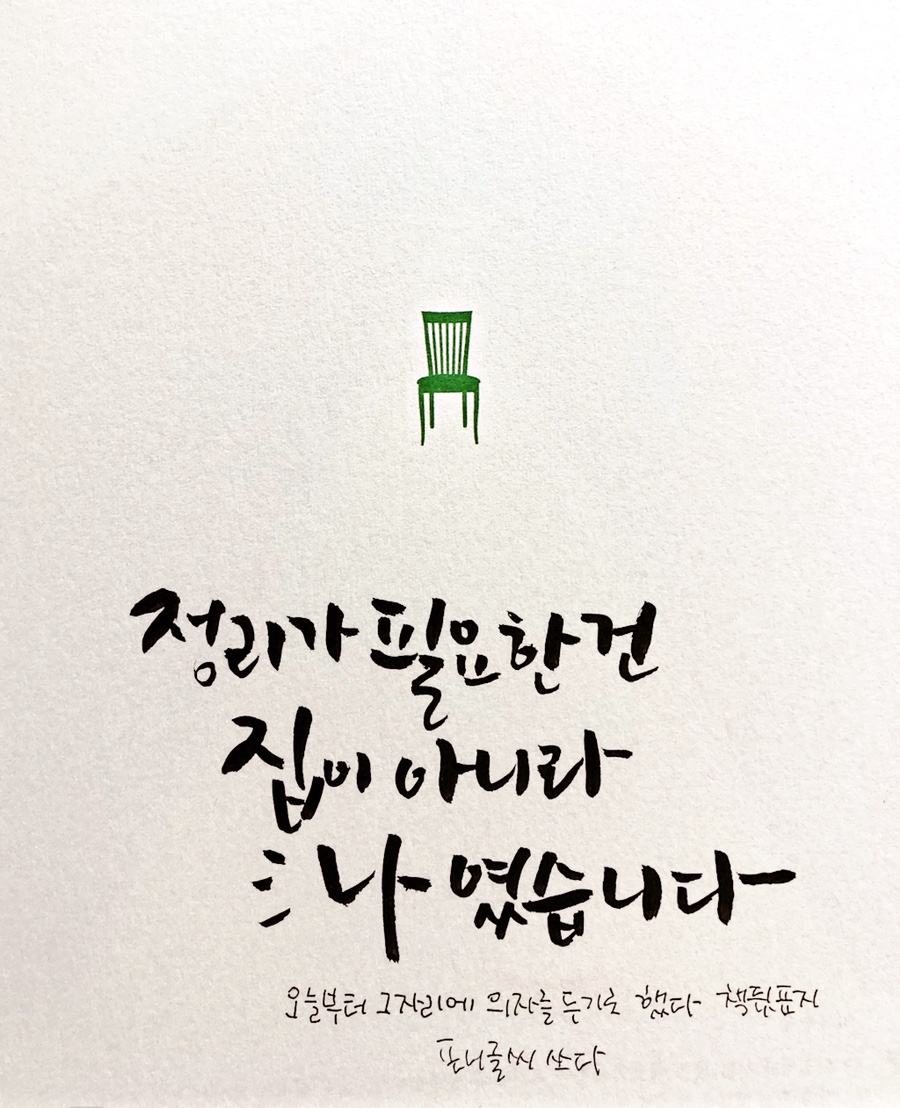 정리가 필요한 건
집이 아니라
나였습니다
오늘부터 그 자리에 의자를 두기로 했다 책뒷표지
포니글씨 쓰다